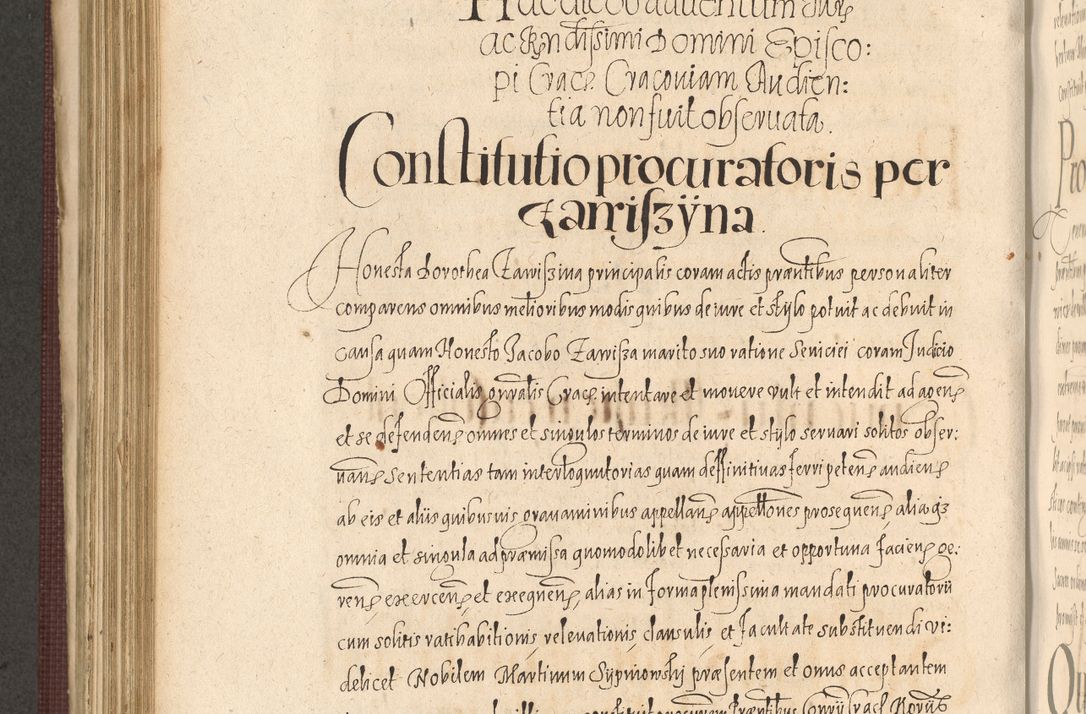 Hac die ob aduentum Suæ
ac Rndissimi Domini Episco:
pi Crac: Cracouiam Audien:
tia non fuit obseruata.
Constitutio procuratoris per
Zarriszÿna.
Honesta Dorothea Zarriszina principalis coram actis præntibus personaliter
comparens omnibus melioribus modis quibus de iure et stÿlo potuit ac debuit in
causa quam Honesto Jacobo Zarrisza marito suo ratione seniciei coram Judicio
Domini Officialis gnralis Crac: intentare et mouere vult et intendit ad agend
et se defendend omnes et singulos terminos de iure et stÿlo seruari solitos obser:
uand sententias tam interloquutorias quam deffinitiuas ferri petend audiend
ab eis et aliis quibusuis grauaminibus appelland appellones prosequend aliaqz
omnia et singula ad præmissa quomodolibet necessaria et opportuna faciend ge:
rend exercend et exequend, alias in forma plenissima mandati procuratorii
cum solitis ratihabitionis, releuationis clausulis et facultate substituendi vi:
delicet Nobilem Martinum Sÿpniowskj præsentem et onus acceptantem